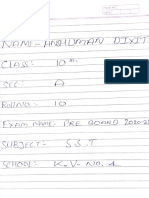 NAME- ANSHUMAN DIXIT
CLASS: 10th
SEC: A
ROLLNO: 10
EXAM NAME PRE BOARD 2020-21
SUBJECT:- S.S.T
SCHOOL: K.V- NO. 4